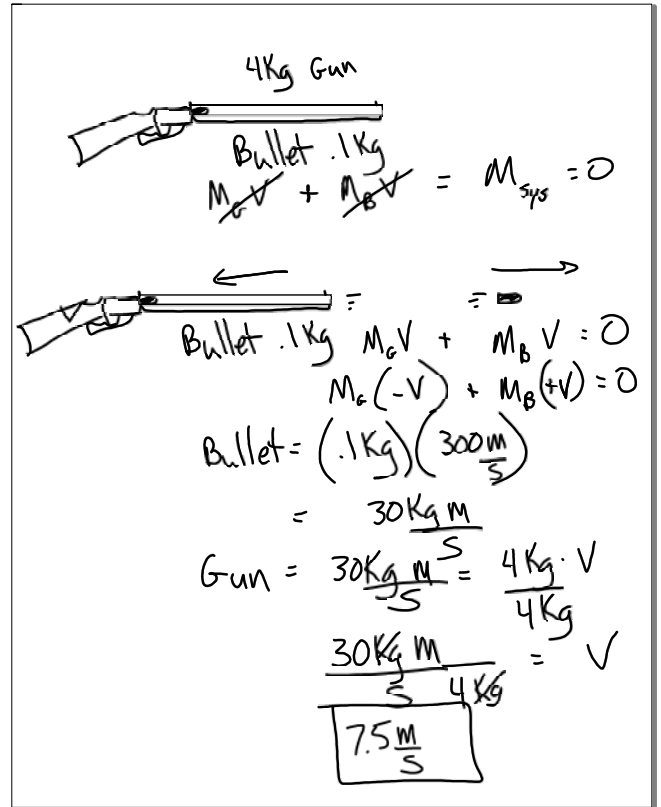 4Kg Gun
Bullet .1Kg
M_G V + M_B V = M_sys = 0
Bullet .1Kg M_G V + M_B V = 0
M_G (-V) + M_B (+V) = 0
Bullet = (.1Kg)(300 m/s)
= 30 Kg m/s
Gun = 30 Kg m/s = 4Kg · V / 4Kg
30 Kg m/s / 4 Kg = V
7.5 m/s